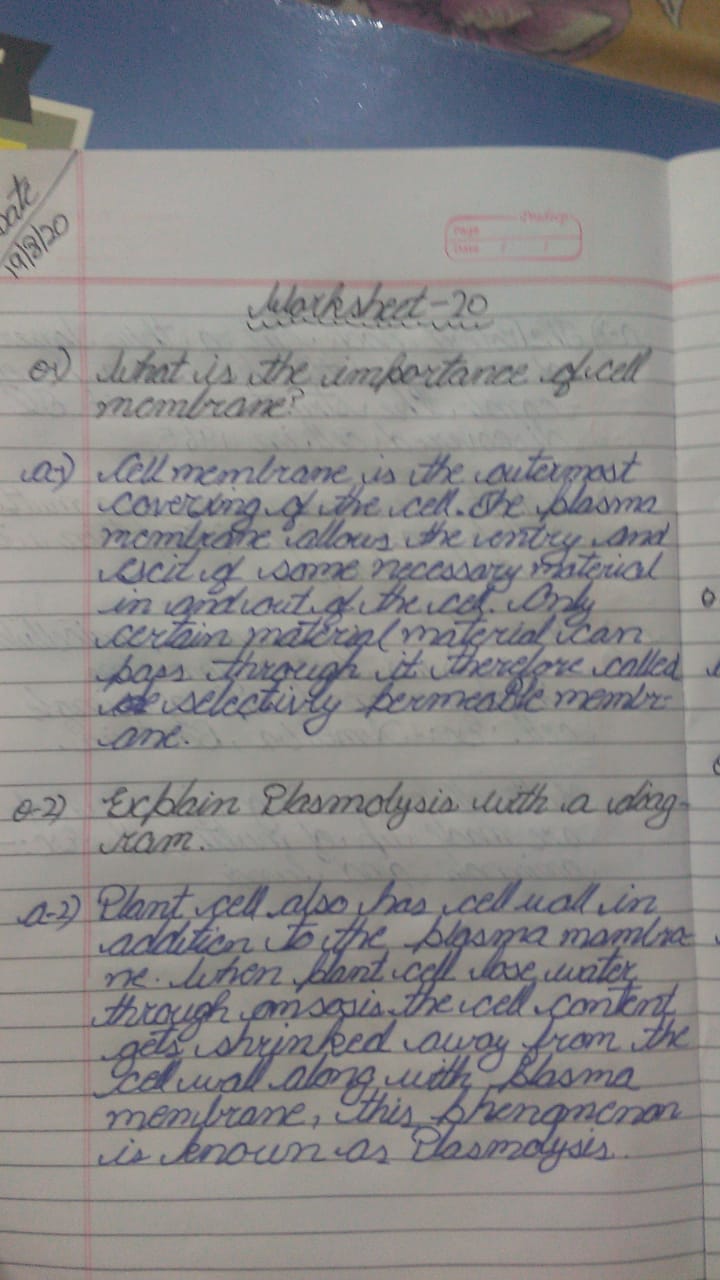 Date
19/8/20
Pradeep
Page
Date / /
Worksheet-20
Q1) What is the importance of cell
membrane?
a-1) Cell membrane is the outermost
covering of the cell. The plasma
membrane allows the entry and
escit of some necessary material
in and out of the cell. Only
certain material material can
pass through it therefore called
selectivly permeable membr-
ane.
Q-2) Explain Plasmolysis with a diag-
ram.
a-2) Plant cell also has cell wall in
addition to the plasma mambra
ne. When plant cell lose water
through omsosis the cell content
gets shrinked away from the
cell wall along with plasma
membrane, this phengmenon
is known as Plasmolysis.